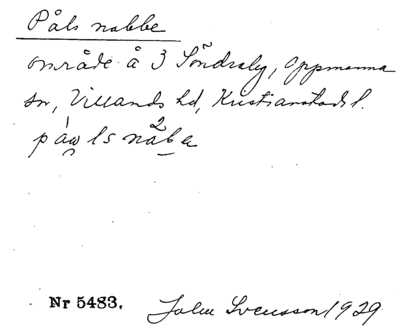 Påls nabbe
område å 3 Söndraby, Oppmanna
sn, Villands hd, Kristianstads l.
påwls nabe
Nr 5483. John Svensson 1929